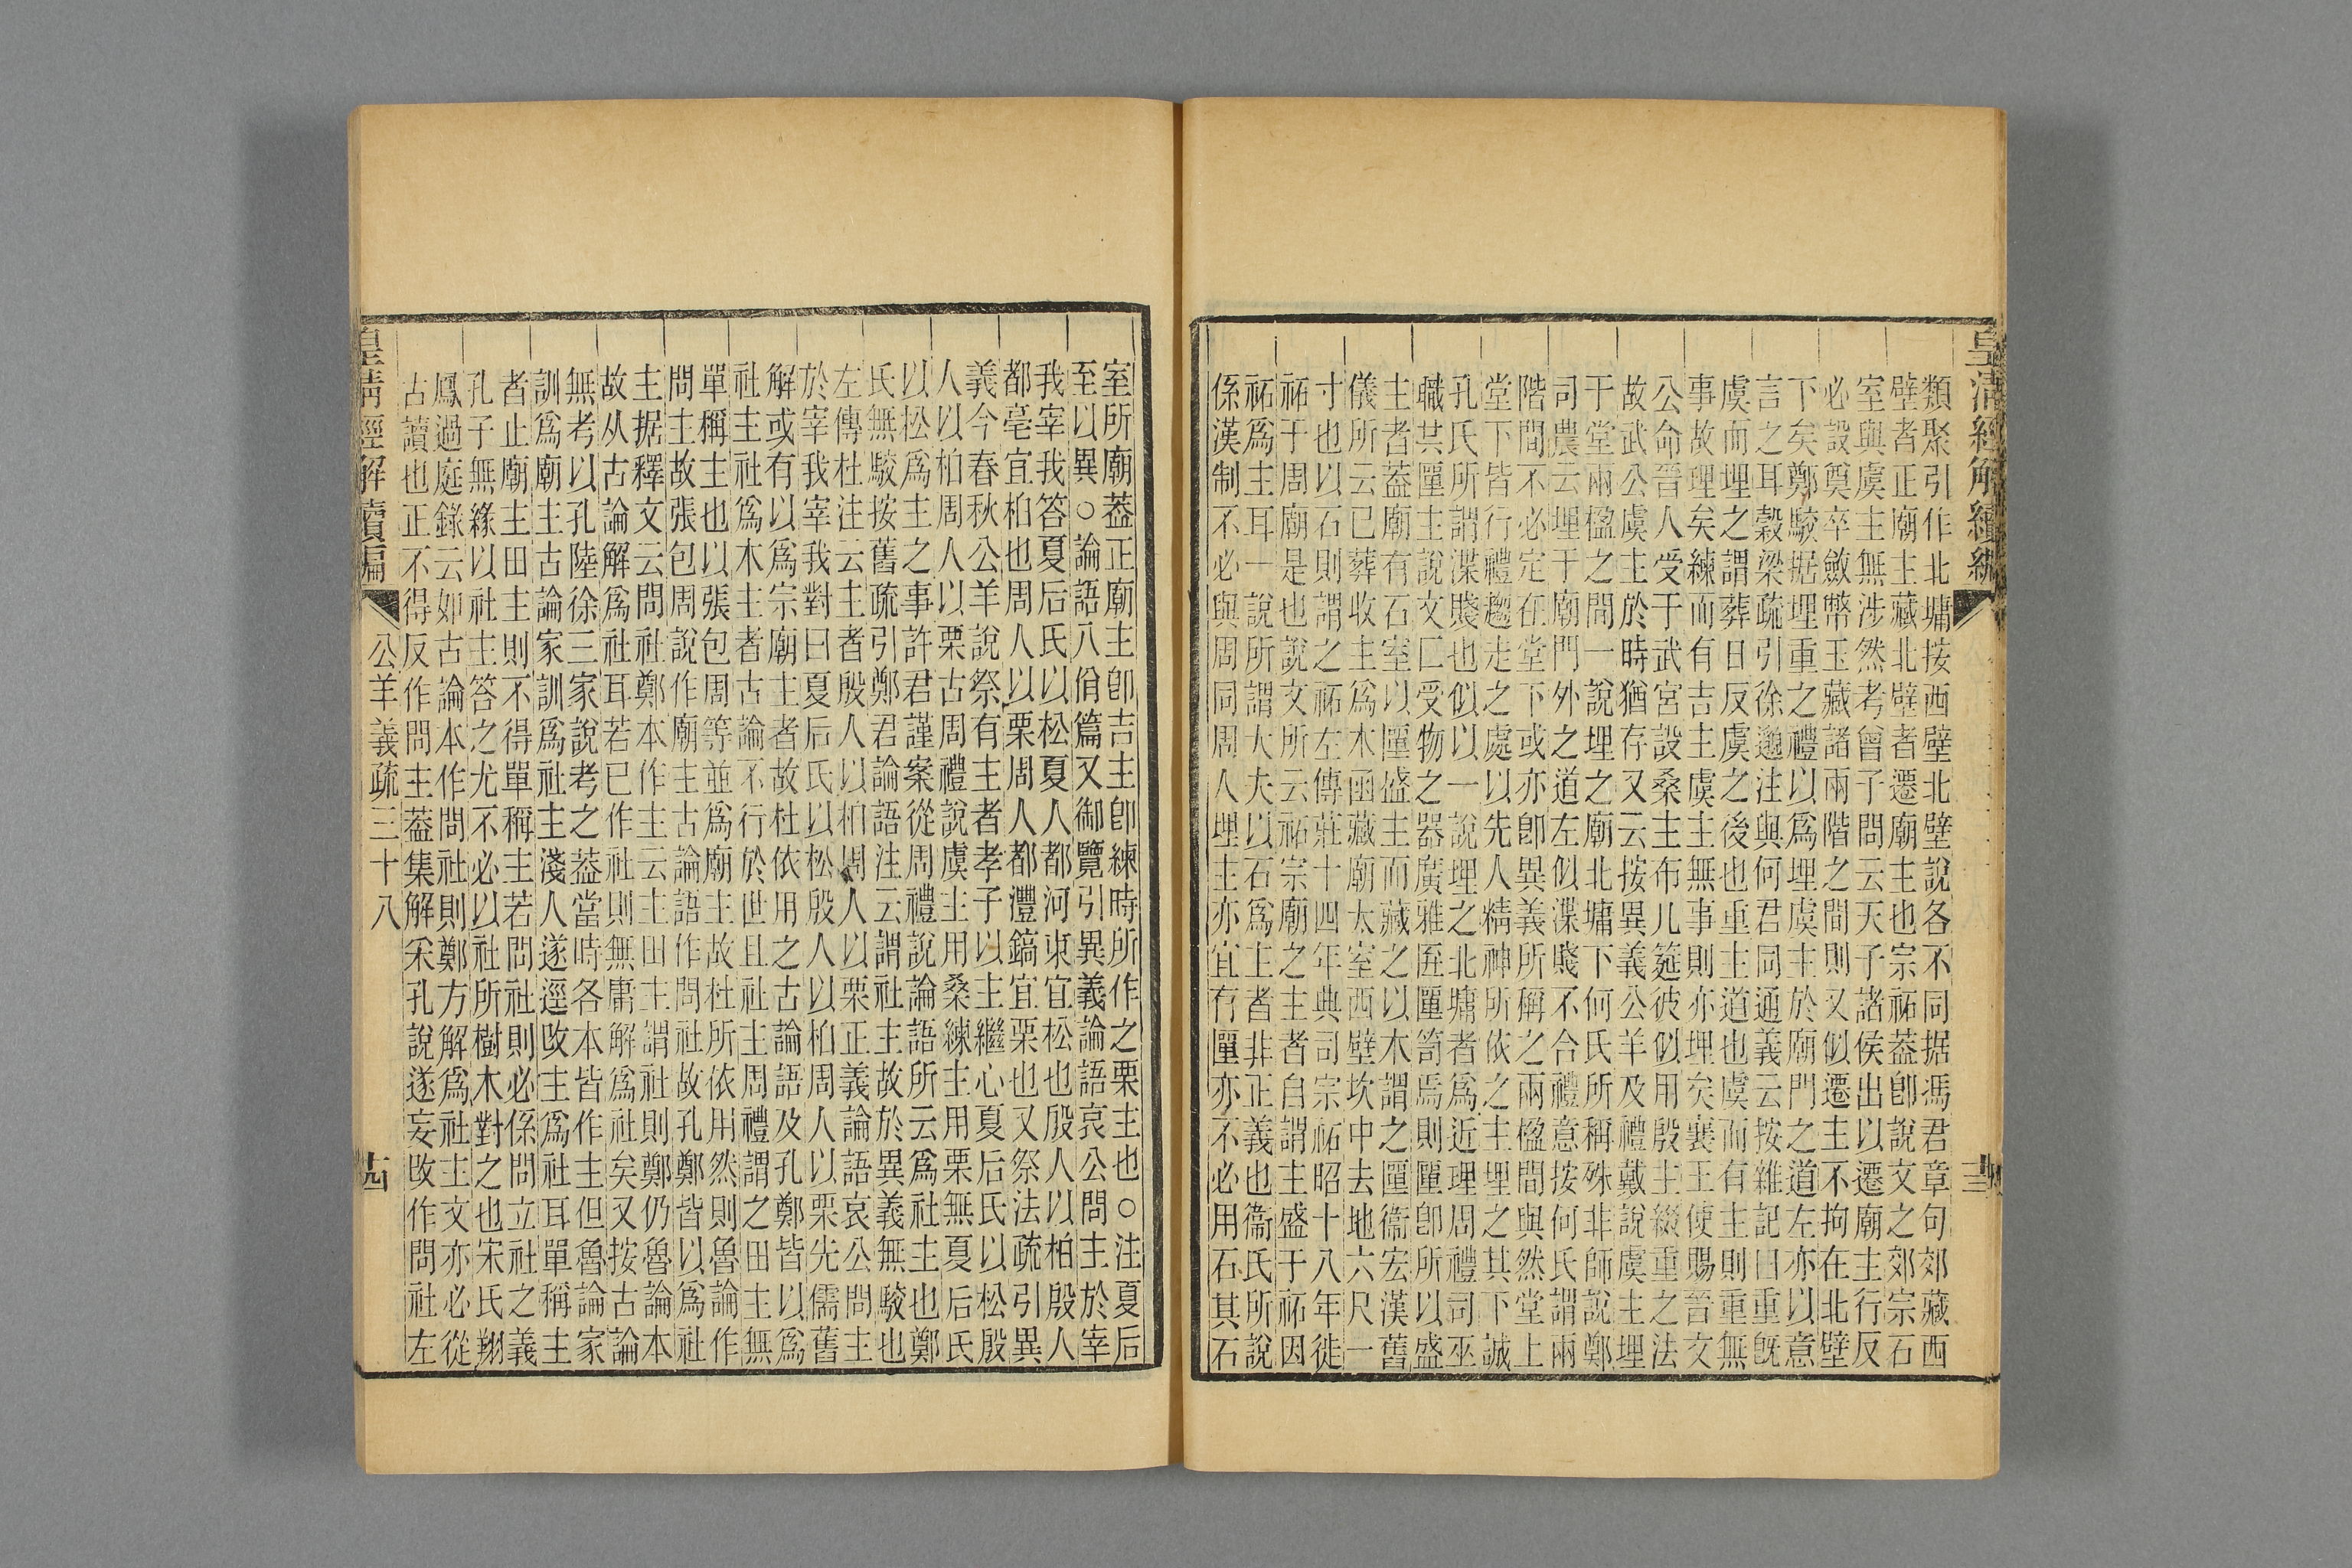 皇清經解續編
類聚引作北墉按西壁北壁說各不同据馮君章句郊藏西
壁者正廟主藏北壁者遷廟主也宗祏葢卽說文之郊宗石
室與虞主無涉然考曾子問云天子諸侯出以遷廟主行反
必設奠卒斂幣玉藏諸兩階之間則又似遷主不拘在北壁
下矣鄭駮据埋重之禮以爲埋虞主於廟門之道左亦以意
言之耳穀梁疏引徐邈注與何君同通義云按雜記曰重旣
虞而埋之謂葬日反虞之後也重主道也虞而有主則重無
事故理矣練而有吉主虞主無事則亦埋矣襄王使賜晉文
公命晉人受于武宮設桑主布几筵彼似用殷主綴重之法
故武公虞主於時猶存又云按異義公羊及禮戴說虞主埋
于堂兩楹之間一說埋之廟北墉下何氏所稱殊非師說鄭
司農云埋于廟門外之道左似渫賤不合禮意按何氏謂兩
階間不必定在堂下或亦卽異義所稱之兩楹間與然堂上
堂下皆行禮趨走之處以先人精神所依之主埋之其下誠
孔氏所謂渫賤也似以一說埋之北墉者爲近理周禮司巫
職共匰主說文匚受物之器廣雅匪匰笥焉則匰卽所以盛
主者葢廟有石室以匰盛主而藏之以木謂之匰衞宏漢舊
儀所云已葬收主爲木函藏廟太室西壁坎中去地六尺一
寸也以石則謂之祏左傳莊十四年典司宗祏昭十八年徙
祏于周廟是也說文所云祏宗廟之主者自謂主盛于祏因
祏爲主耳一說所謂大夫以石爲主者非正義也衞氏所說
係漢制不必與周同周人埋主亦宜有匰亦不必用石其石
室所廟葢正廟主卽吉主卽練時所作之栗主也○注夏后
至以異○論語八佾篇又御覽引異義論語哀公問主於宰
我宰我答夏后氏以松夏人都河東宜松也殷人以柏殷人
都亳宜柏也周人以栗周人都灃鎬宜栗也又祭法疏引異
義今春秋公羊說祭有主者孝子以主繼心夏后氏以松殷
人以柏周人以栗古周禮說虞主用桑練主用栗無夏后氏
以松爲主之事許君謹案從周禮說論語所云爲社主也鄭
氏無駮按舊疏引鄭君論語注云謂社主故於異義無駮也
左傳杜注云主者殷人以柏周人以栗正義論語哀公問主
於宰我宰我對曰夏后氏以松殷人以柏周人以栗先儒舊
解或有以爲宗廟主者故杜依用之古論語及孔鄭皆以爲
社主社爲木主者古論不行於世且社主周禮謂之田主無
單稱主也以張包周等並爲廟主故杜所依用然則魯論作
問主故張包周說作廟主古論語作問社故孔鄭皆以爲社
主据釋文云問社鄭本作主云主田主謂社則鄭仍魯論本
故从古論解爲社耳若已作社則無庸解爲社矣又按古論
無考以孔陸徐三家說考之葢當時各本皆作主但魯論家
訓爲廟主古論家訓爲社主淺人遂逕改主爲社耳單稱主
者止廟主田主則不得單稱主若問社則必係問立社之義
孔子無緣以社主答之尤不必以社所樹木對之也宋氏翔
鳳過庭錄云如古論本作問社則鄭方解爲社主文亦必從
古讀也正不得反作問主葢集解采孔說遂妄改作問社左
皇清經解續編 公羊義疏三十八 十四